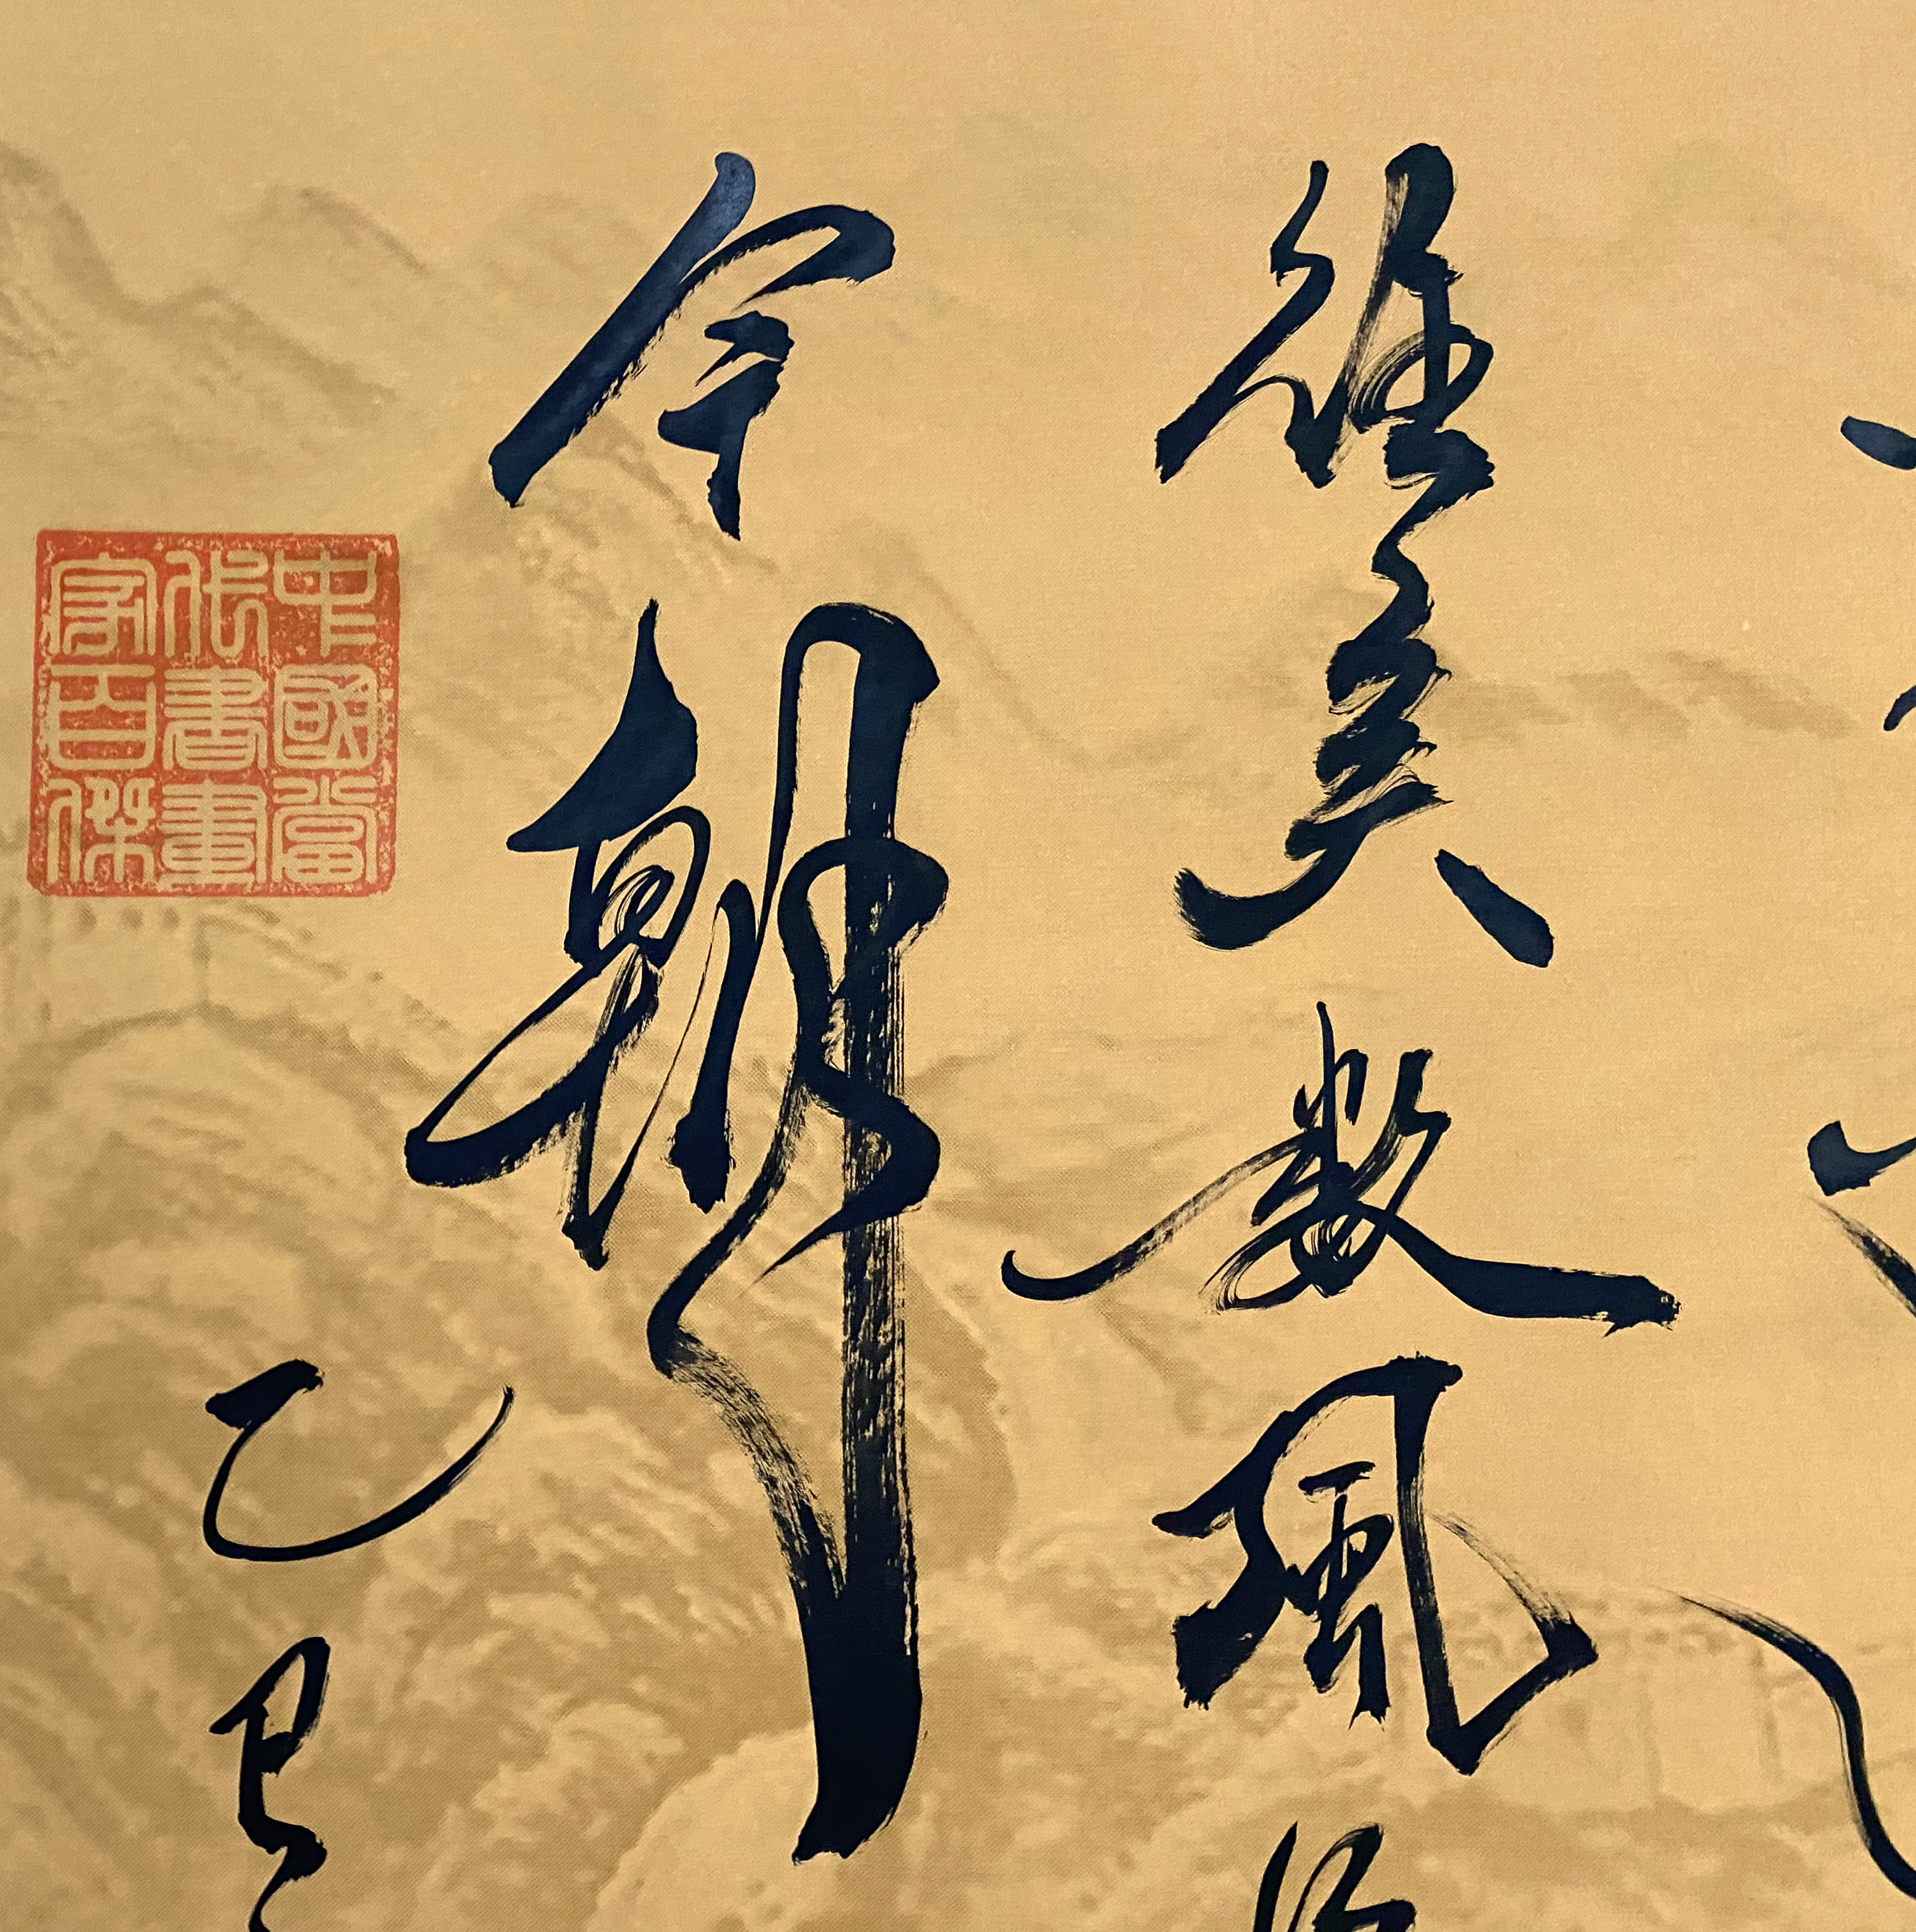 往矣数風
今朝
乙巳
中國當
代書畫
家百傑